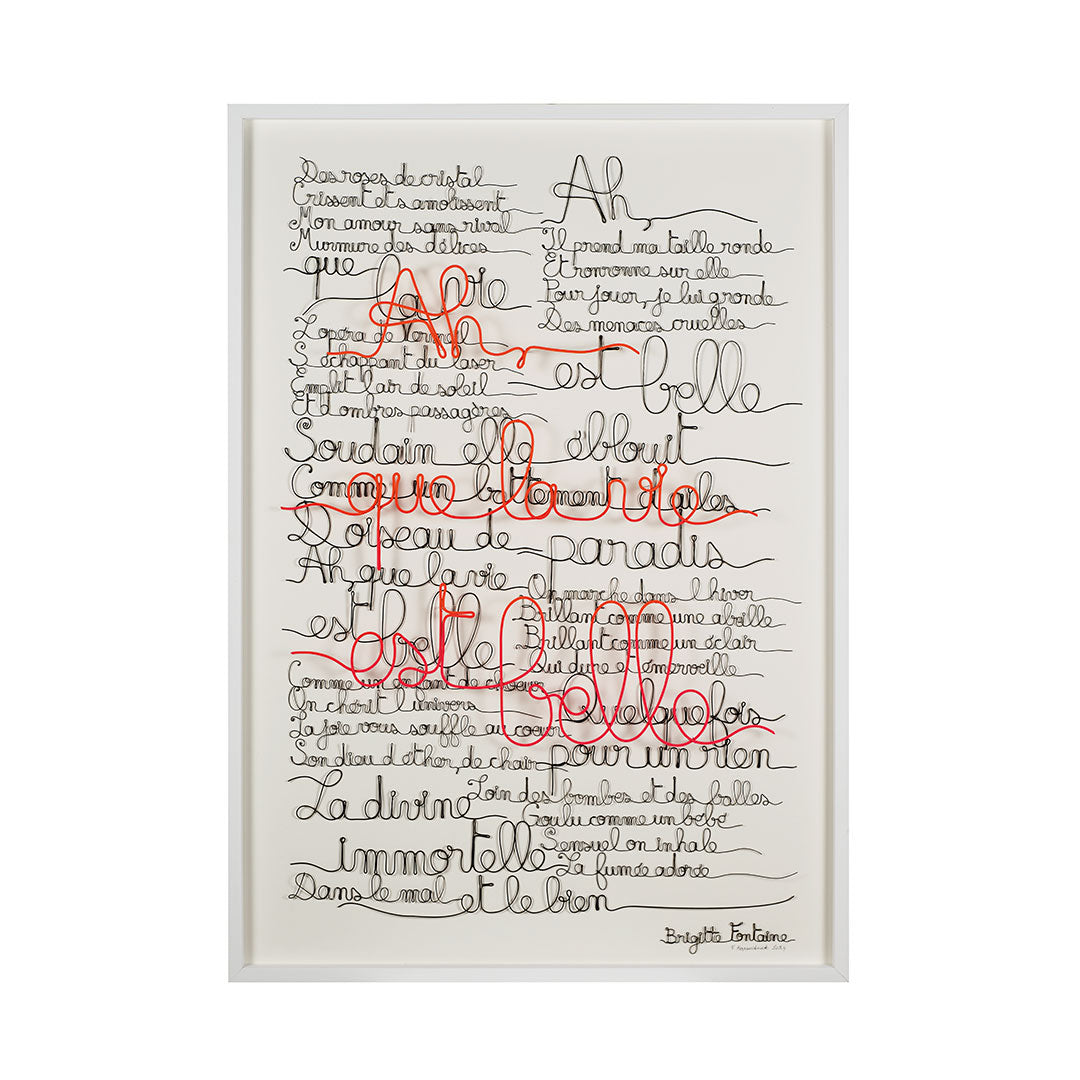 Des roses de cristal
Crissent et s amolissent
Mon amour sans rival
Murmure des délices
que la vie
L opéra de Vermeil
S échappant du laser
Emplit l air de soleil
Et d ombres passagères
Ah,
Il prend ma taille ronde
Et ronronne sur elle
Pour jouer, je lui gronde
Des menaces cruelles
est belle
Soudain elle éblouit
Comme un battement d ailes
D oiseau de paradis
Ah, que la vie
est belle
On marche dans l hiver
Brillant comme une abeille
Brillant comme un éclair
Qui dure et émerveille
Comme un enfant de choeur
On chérit l univers
La joie vous souffle au coeur
Son dieu d éther, de chair
Quelquefois
pour un rien
La divine
immortelle
Dans le mal et le bien
Loin des bombes et des balles
Goulu comme un bébé
Sensuel on inhale
La fumée adorée
Ah,
que la vie
est belle
Brigitte Fontaine